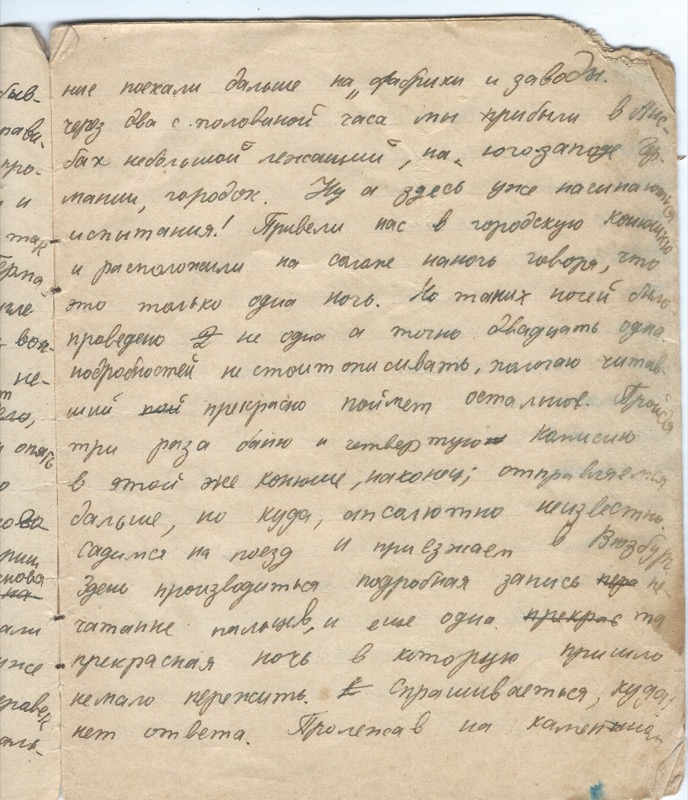 ние поехали дальше на „фабрики и заводы.
через два с половиной часа мы прибыли в Анс-
бах небольшой лежащий, на, югозападе Гер-
мании, городок. Ну а здесь уже начинаються
испытания! Привели нас в городскую конюшню
и расположили на соломе на ночь говоря, что
это только одна ночь. Но таких ночей было
проведено 2 не одна а точно двадцать одна
подробностей не стоит описывать, полагаю читав-
ший пой прекрасно поймет остальное. Пройдя
три раза баню и четвертую комисию
в этой же конюше, наконец; отправляемся
дальше, но куда, апсолютно неизвестно.
садимся на поезд и приезжаем в Вюзбург
Здесь производиться подробная запись пера пе-
чатание пальцев, и еще одна прекрас та
прекрасная ночь в которую пришло
немало пережить. Спрашиваеться, куда?
нет ответа. Пролежав на каменная
быв-
про-
и
так
вой-
не-
опять
о
рищ
снова
на
али
уже
аль-